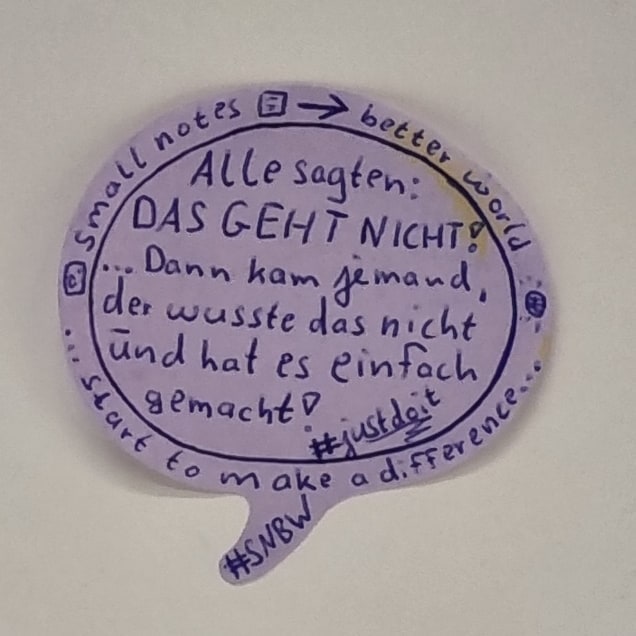 small notes → better world
Alle sagten:
DAS GEHT NICHT!
... Dann kam jemand,
der wusste das nicht
und hat es einfach
gemacht!
#justdoit
... start to make a difference...
#SNBW